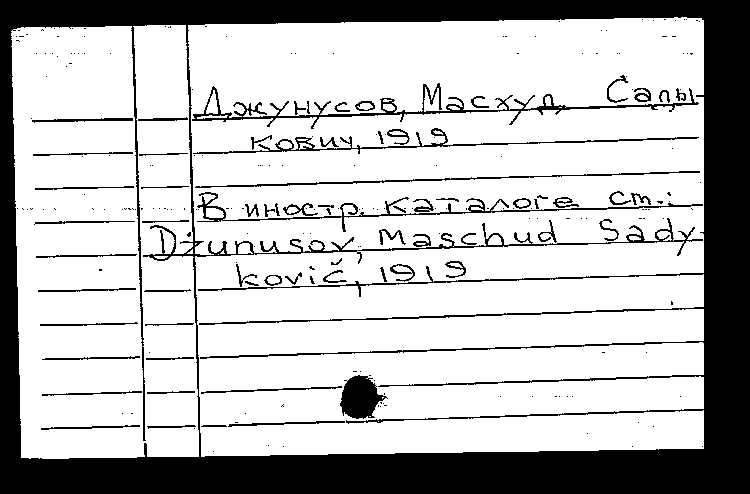 Джунусов, Масхуд Сады-
кович, 1919
В иностр. каталоге ст.:
Džunusov, Maschud Sady-
kovič, 1919